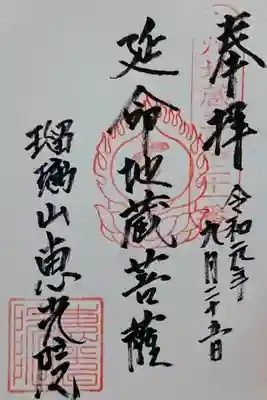 奉拝
令和元年九月二十五日
延命地蔵菩薩
瑠璃山恵光院